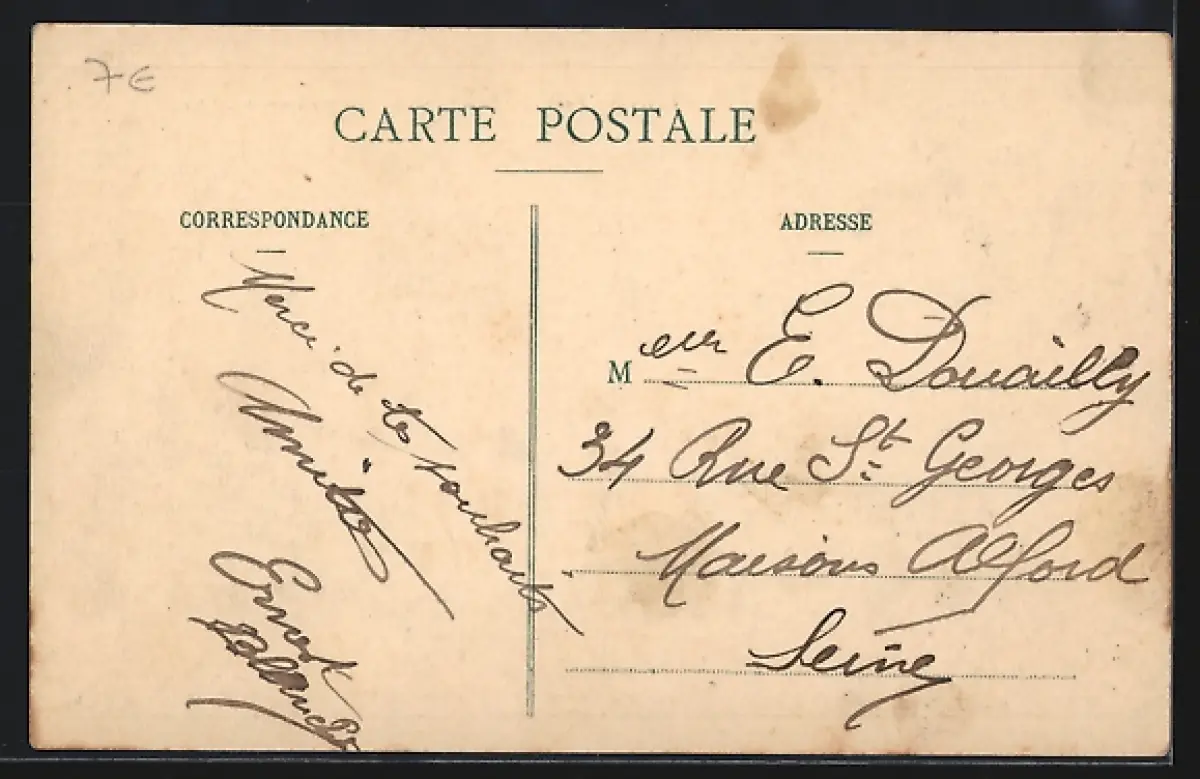 7€
CARTE POSTALE
CORRESPONDANCE
Merci de tes souhaits
Amitiés
Ernest
ADRESSE
Meur E. Douailly
34 Rue St Georges
Maisons Alford
Seine